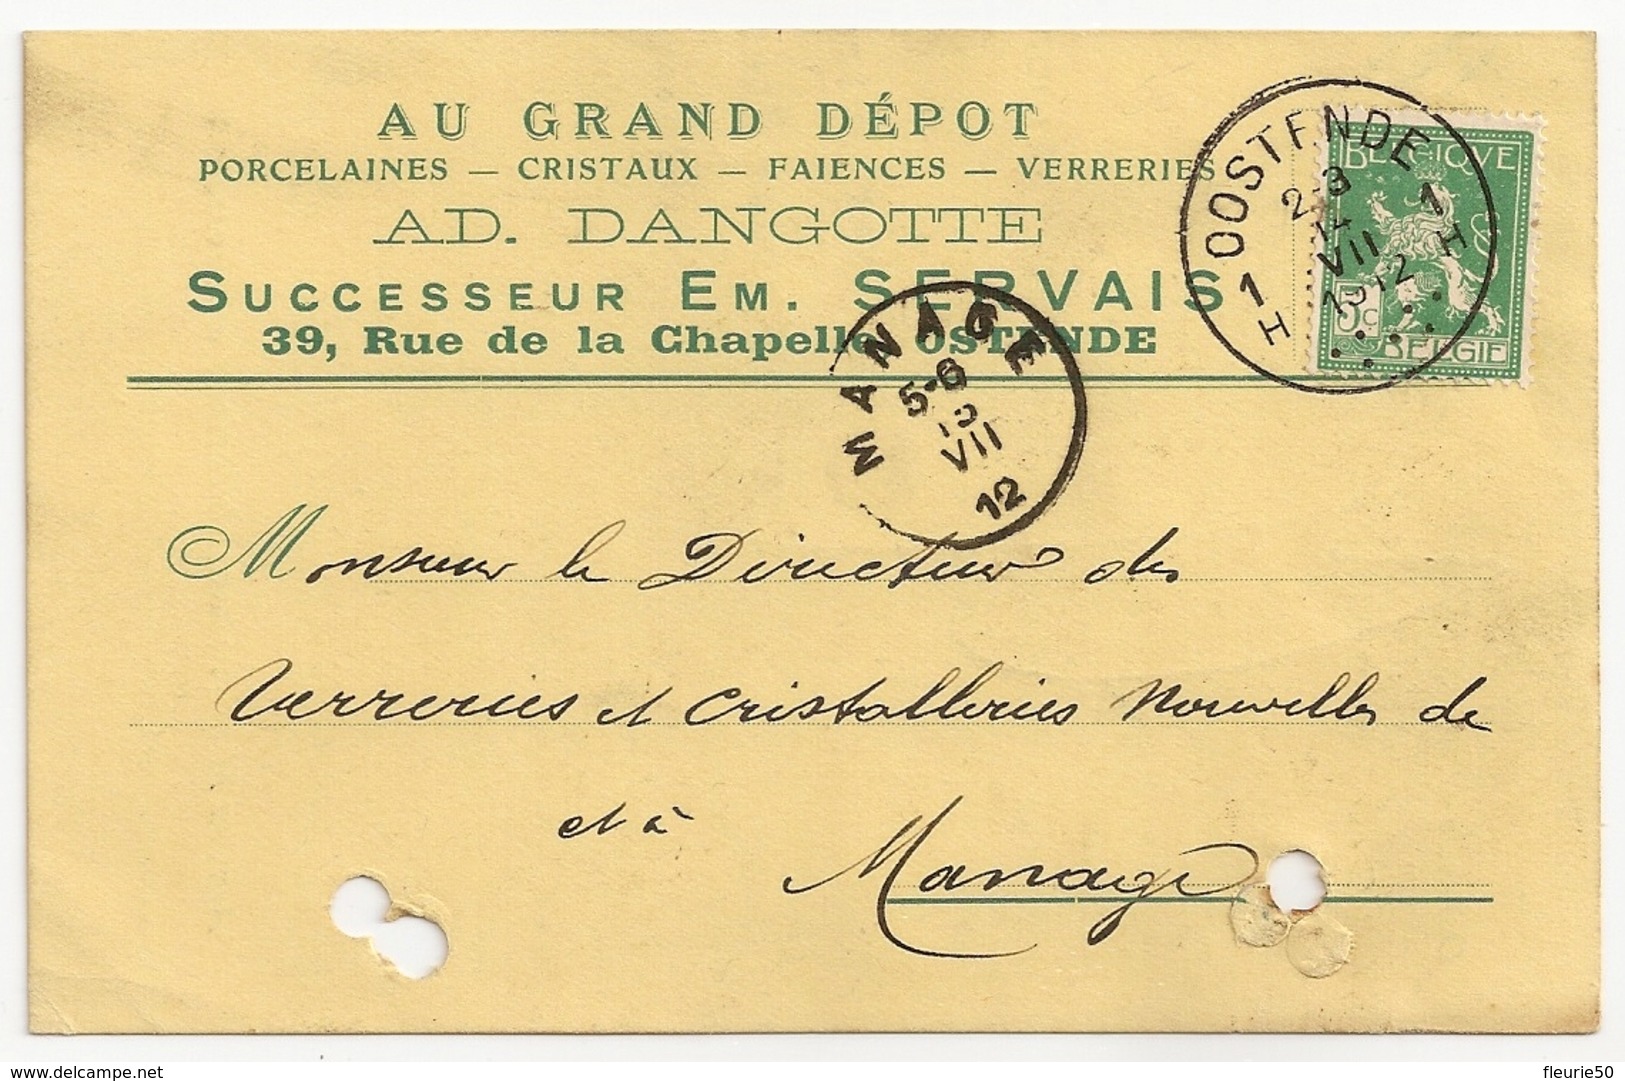 AU GRAND DÉPOT
PORCELAINES — CRISTAUX — FAIENCES — VERRERIES
AD. DANGOTTE
SUCCESSEUR EM. SERVAIS
39, Rue de la Chapelle, OSTENDE
OOSTENDE
2-3
VII
1912
1 H
1 H
BELGIQUE
5c
BELGIË
MANAGE
5-6
VII
12
Monsieur le Directeur des
Verreries et Cristalleries Nouvelles de
et à
Manage
delcampe.net
fleurie50